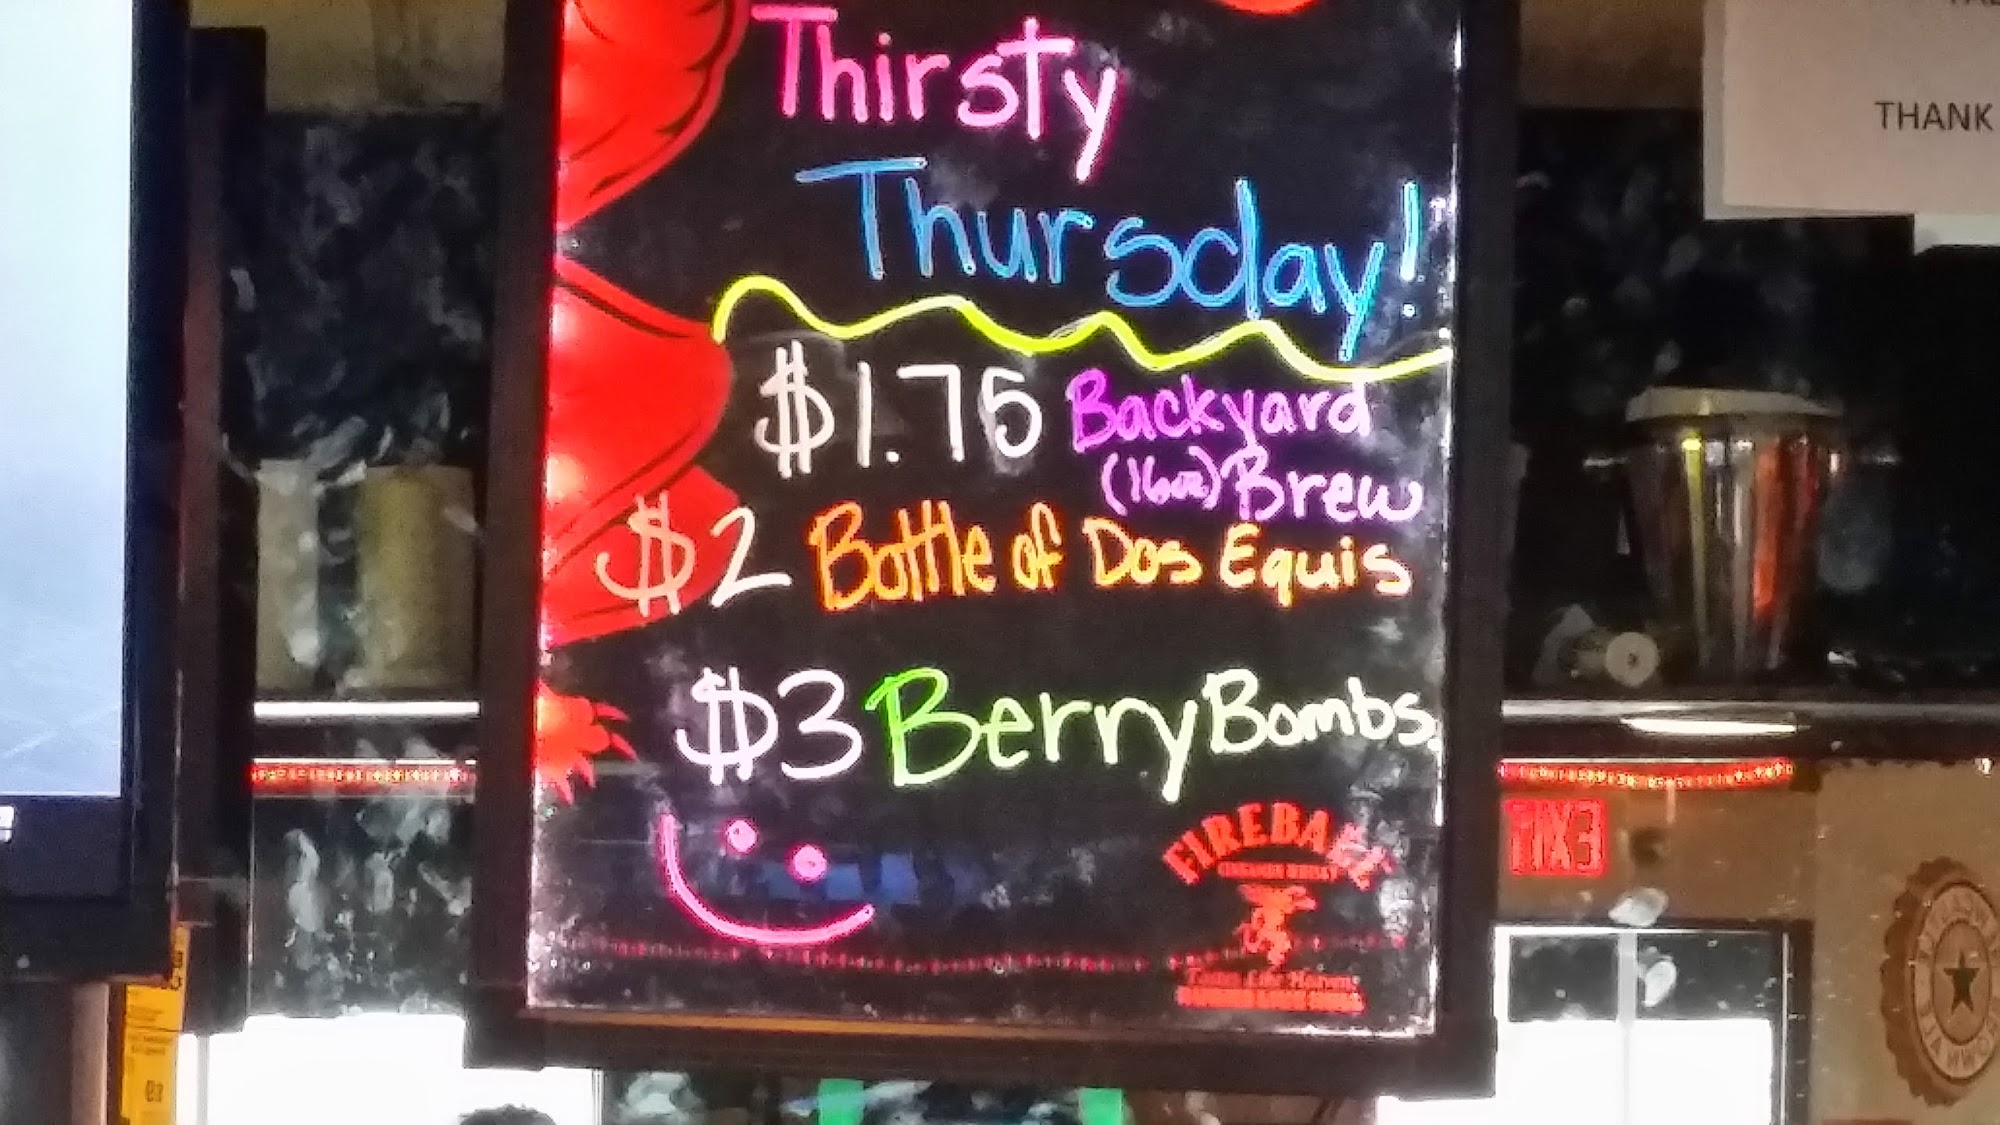 Thirsty
Thursday!
$1.75 Backyard
(16oz) Brew
$2 Bottle of Dos Equis
$3 Berry Bombs
FIREBALL
CINNAMON WHISKY
Tastes Like Heaven,
BURNS LIKE HELL
THANK
EXIT